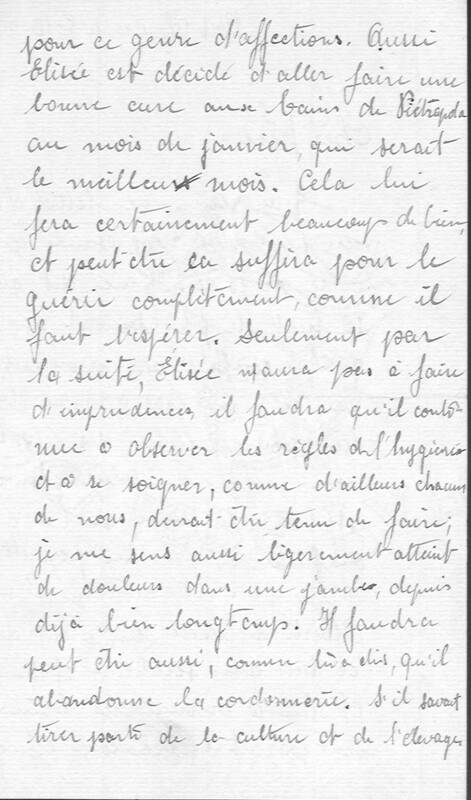 pour ce genre d'affections. Aussi
Elisée est décidé d'aller faire une
bonne cure aux bains de Pietrapola
au mois de janvier, qui serait
le meilleur mois. Cela lui
fera certainement beaucoup de bien,
et peut être ca suffira pour le
guérir complètement, comme il
faut l'espérer. Seulement par
la suite, Élisée n'aura pas à faire
d'imprudences, il faudra qu'il conti-
nue à observer les règles de l'hygiène
et à se soigner, comme d'ailleurs chacun
de nous, devrait être tenu de faire;
je me sens aussi légerement atteint
de douleurs dans une jambe, depuis
déjà bien longtemps. Il faudra
peut être aussi, comme tu dis, qu'il
abandonne la cordonnerie. S'il savait
tirer parti de la culture et de l'élevage